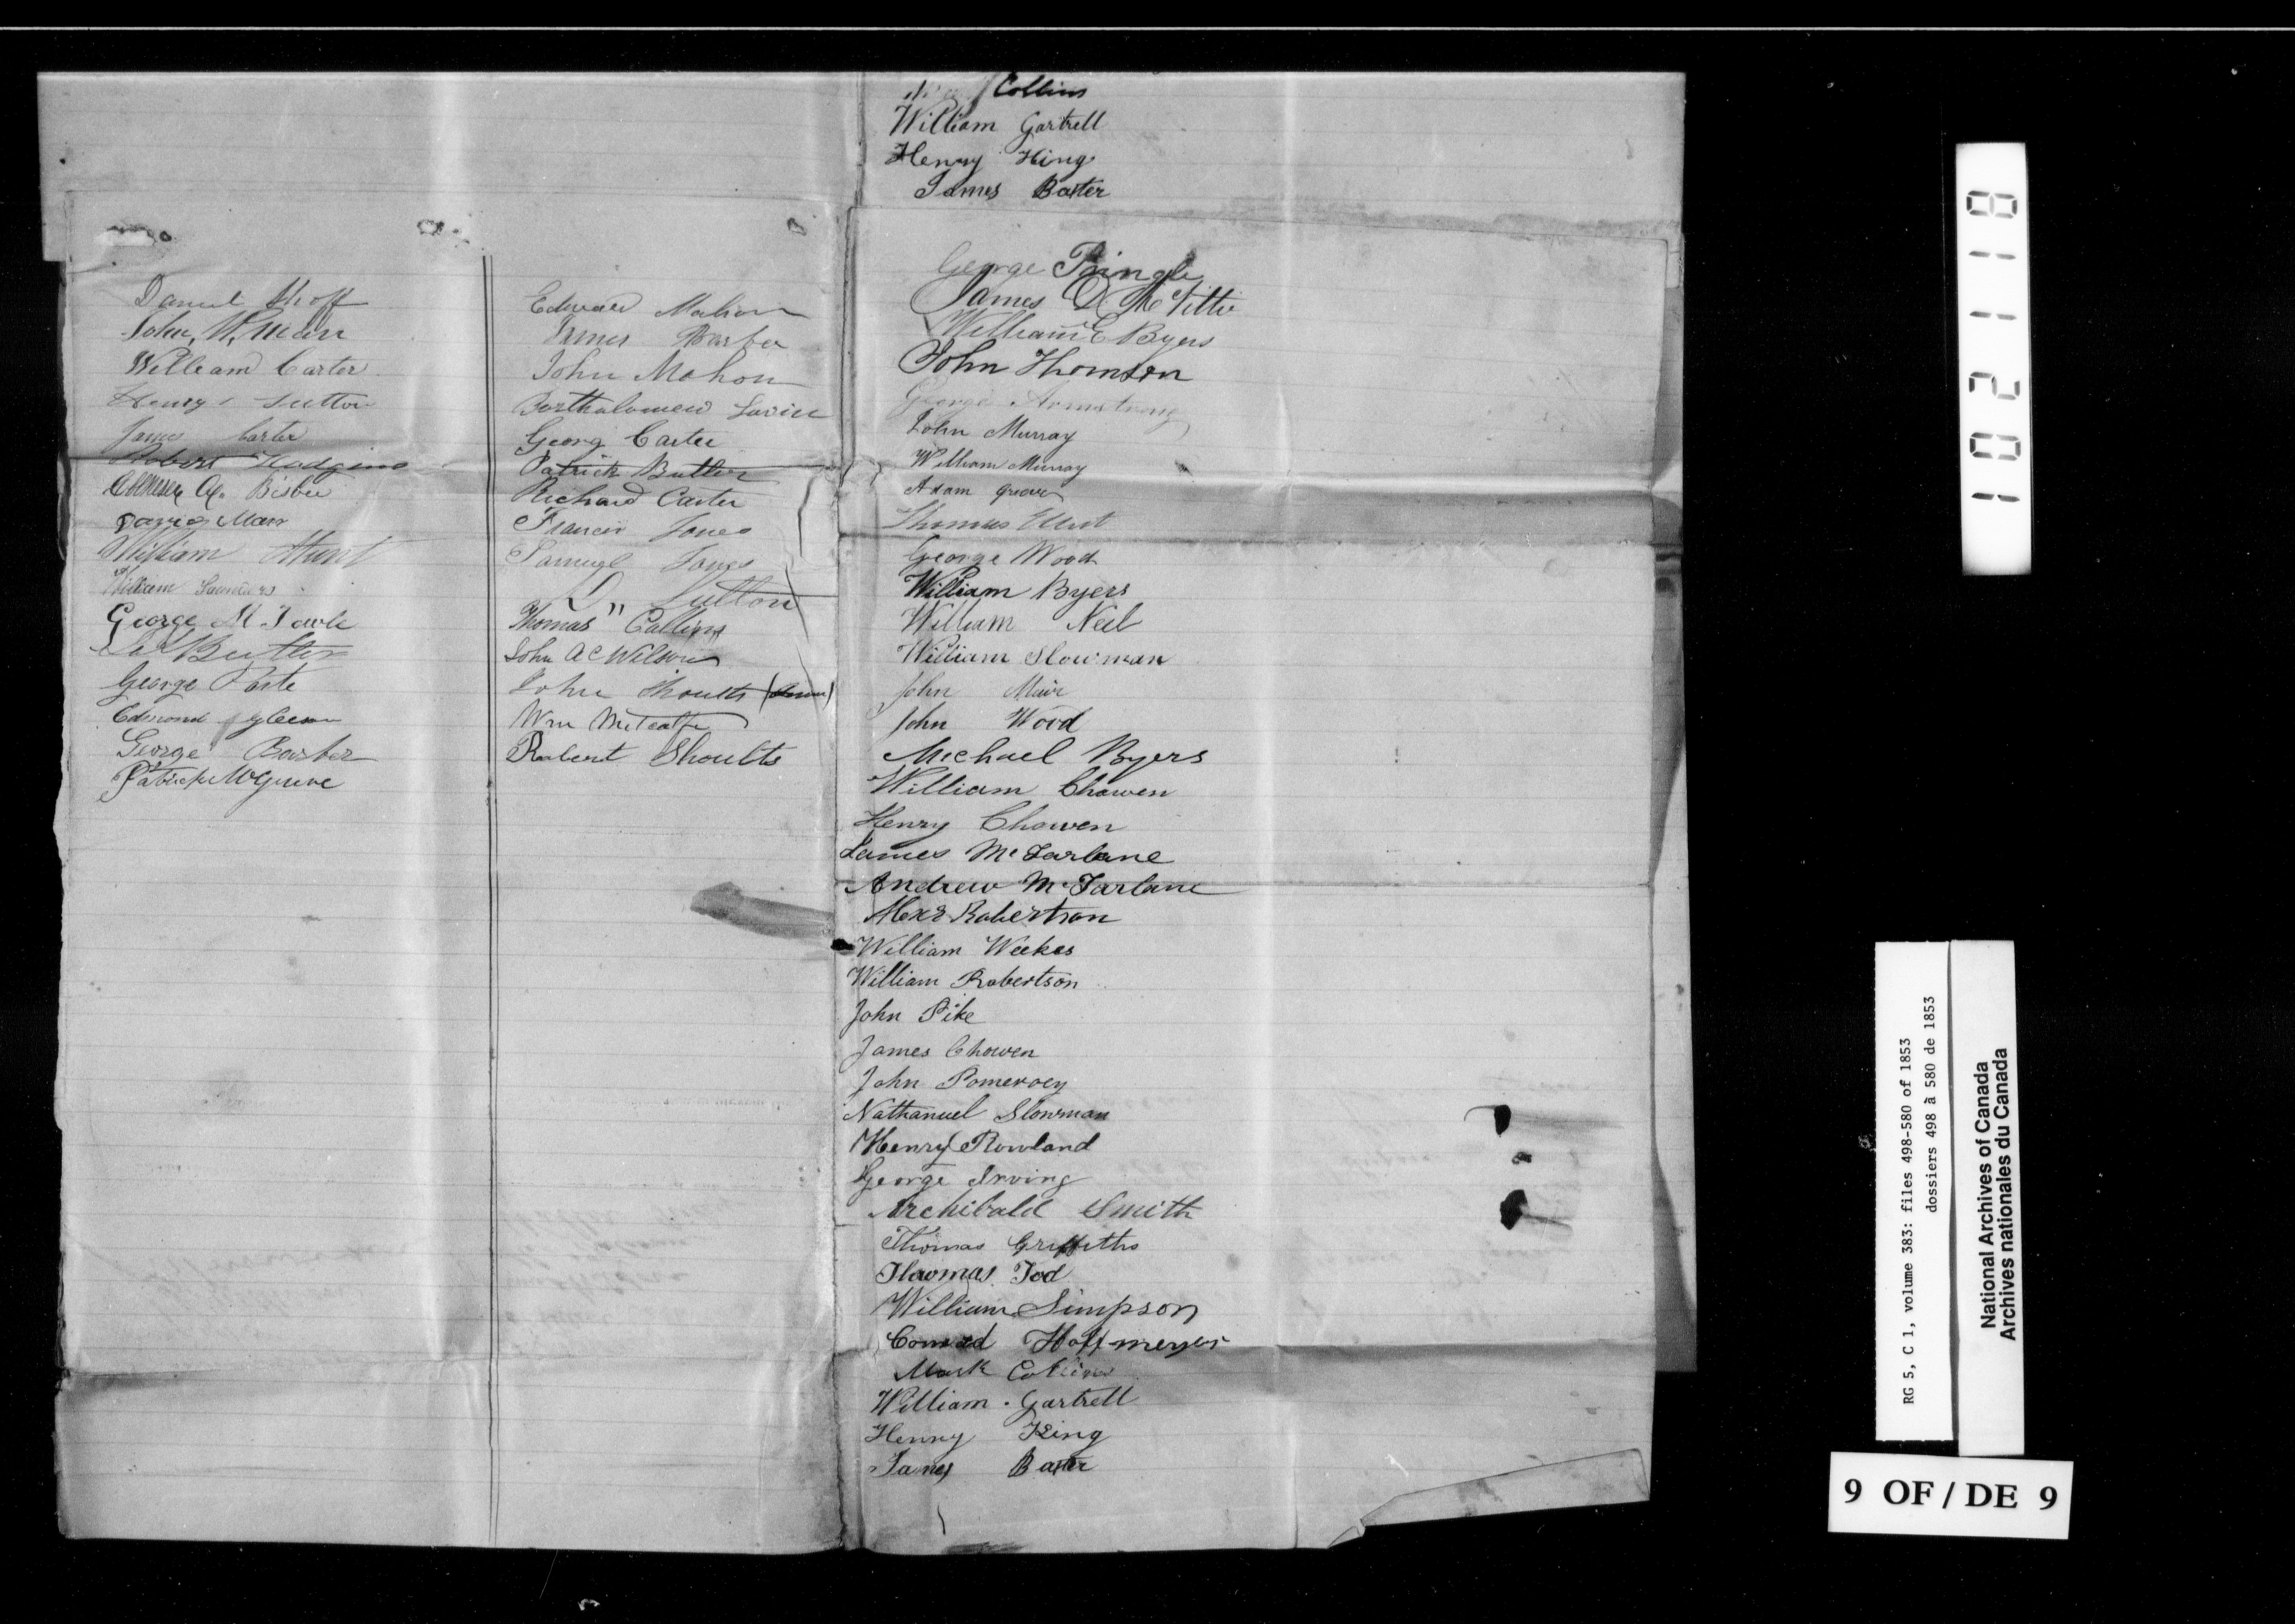 Daniel Shoff
John, W, Marr
William Carter
Henry Sutton
James Carter
Robert Hodgins
Ebeneser A. Bisbee
David Marr
William
William Saunders
George M Towle
Butler
George
Edmond Gleeson
George Barber
Patrick McGuire
Edward Mahon
James Barber
John Mahon
Bartholomew
Georg Carter
Patrick Butler
Richard Carter
Francis Jones
Samuel Jones
Sutton
Thomas " Collins
John A C Wilson
John Shoults
Wm Metcalfe
Robert Shoults
Collins
William Gartrell
Henry King
James Baxter
George Pringle
James D. McVittie
William E Byers
John Thomson
George Armstrong
John Murray
William Murray
Adam
Thomas
George Wood
William Byers
William Neil
William Slowman
John Muir
John Wood
Michael Byers
William Chowen
Henry Chowen
James McFarlane
Andrew McFarlane
Alexr Robertson
William Weekes
William Robertson
John Pike
James Chowen
John Pomeroey
Nathanuel Slowman
Henry Rowland
George Irving
Archibald Smith
Thomas Griffiths
Thomas Tod
William Simpson
Conrad Hoffmeyer
Mark Collins
William Gartrell
Henry King
James Baxter
102118
RG 5, C 1, volume 383: files 498-580 of 1853
dossiers 498 à 580 de 1853
National Archives of Canada
Archives nationales du Canada
9 OF / DE 9